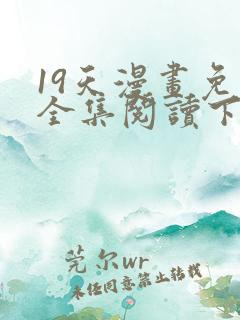 19天漫畫免
全集閱讀下
莞尔wr
未经同意禁止转载